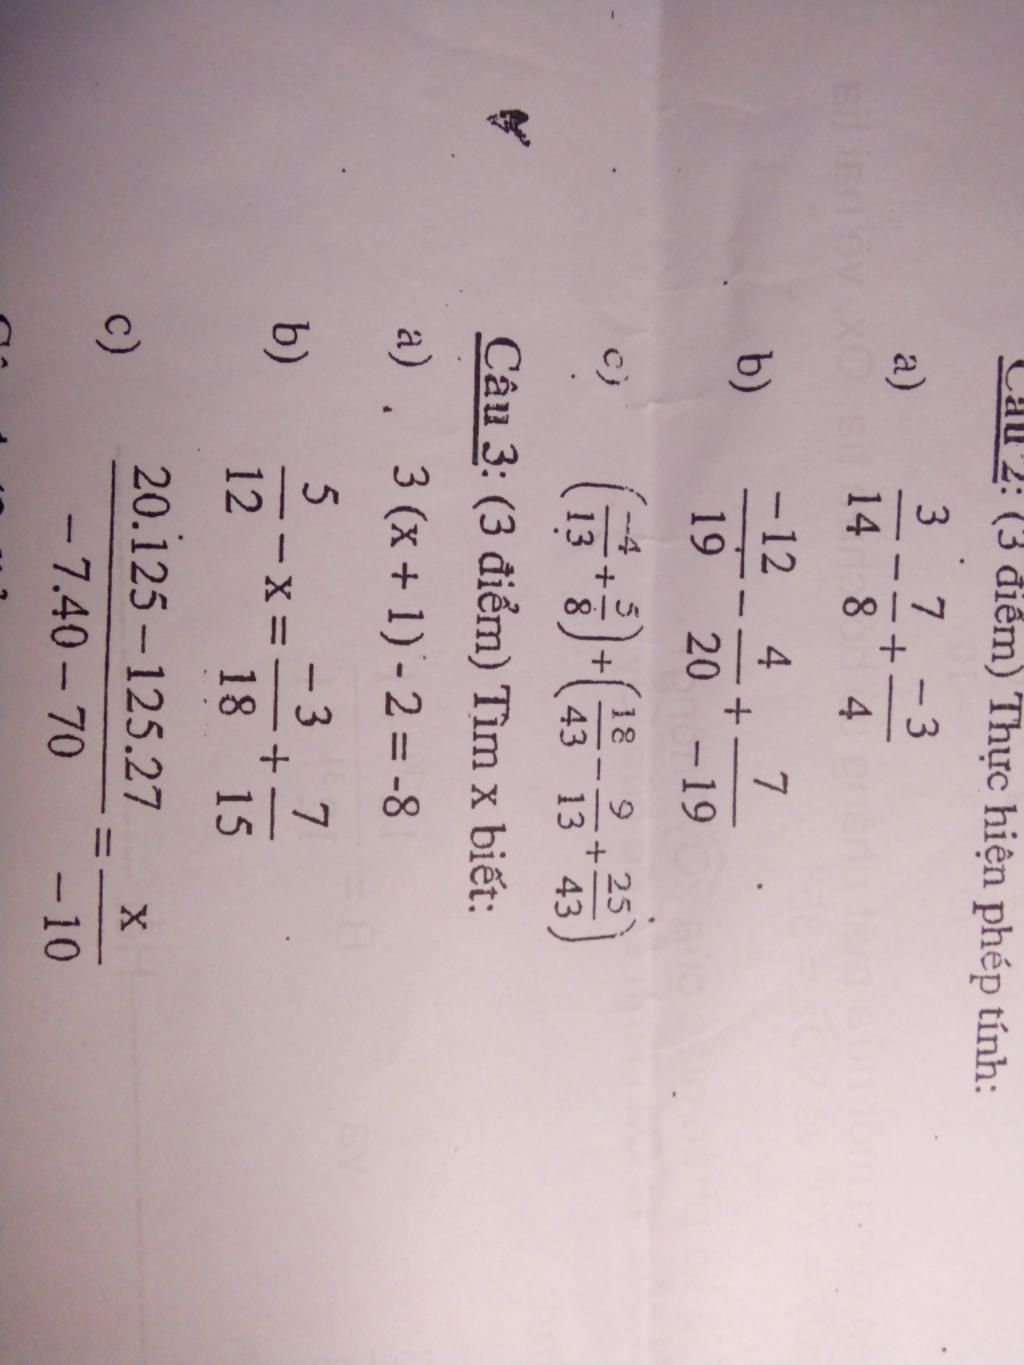 Câu 2: (3 điểm) Thực hiện phép tính:
a) 3/14 - 7/8 + -3/4
b) -12/19 - 4/20 + 7/-19
c) (-4/13 + 5/8) + (18/43 - 9/13 + 25/43)
Câu 3: (3 điểm) Tìm x biết:
a) 3 (x + 1) - 2 = -8
b) 5/12 - x = -3/18 + 7/15
c) 20.125 - 125.27/-7.40 - 70 = x/-10